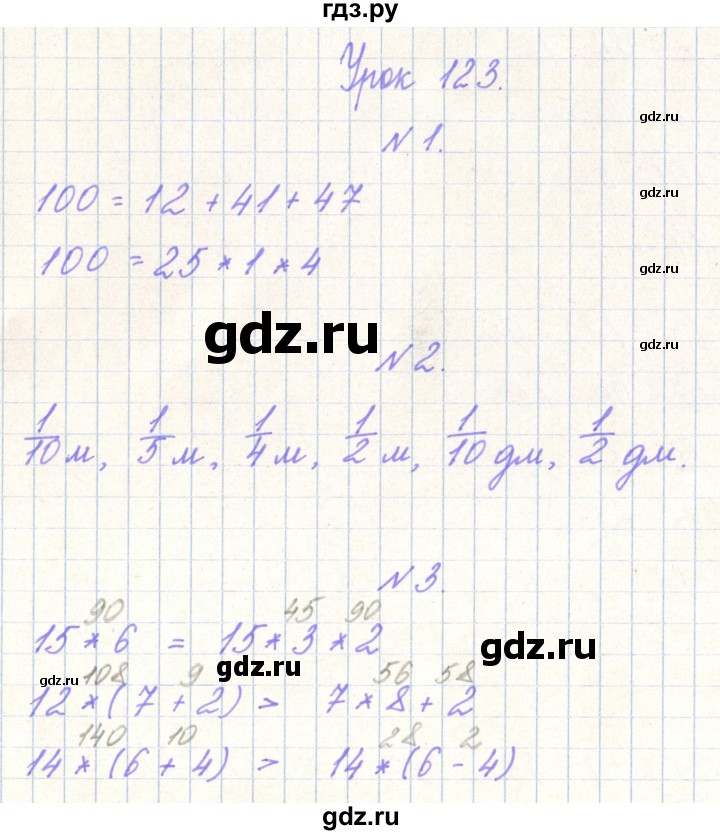 гдз.ру
Урок 123.
gdz.ru
N 1.
gdz.ru
100 = 12 + 41 + 47
100 = 25 * 1 * 4
gdz.ru
gdz.ru
N 2.
gdz.ru
1/10 м, 1/5 м, 1/4 м, 1/2 м, 1/10 дм, 1/2 дм.
N 3.
90 45 90
15 * 6 = 15 * 3 * 2
gdz.ru
108 9 56 58
gdz.ru gdz.ru
12 * (7 + 2) > 7 * 8 + 2
140 10 28 2
14 * (6 + 4) > 14 * (6 - 4)
gdz.ru